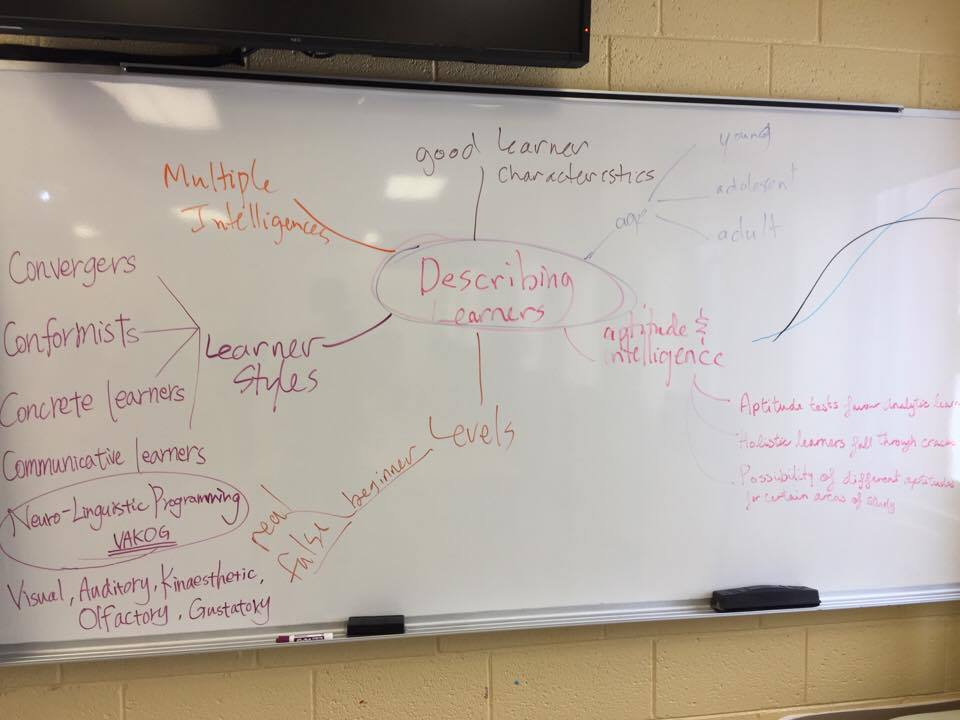 good Learner
characteristics
Multiple
Intelligences
age
young
adolesent
adult
Describing
Learners
aptitude &
intelligence
Aptitude tests favour analytic lear
Holistic learners fall through cracks
Possibility of different aptitudes
for certain areas of study
Levels
beginner
real
false
Learner
Styles
Convergers
Conformists
Concrete learners
Communicative learners
Neuro-Linguistic Programming
VAKOG
Visual, Auditory, Kinaesthetic,
Olfactory, Gustatory